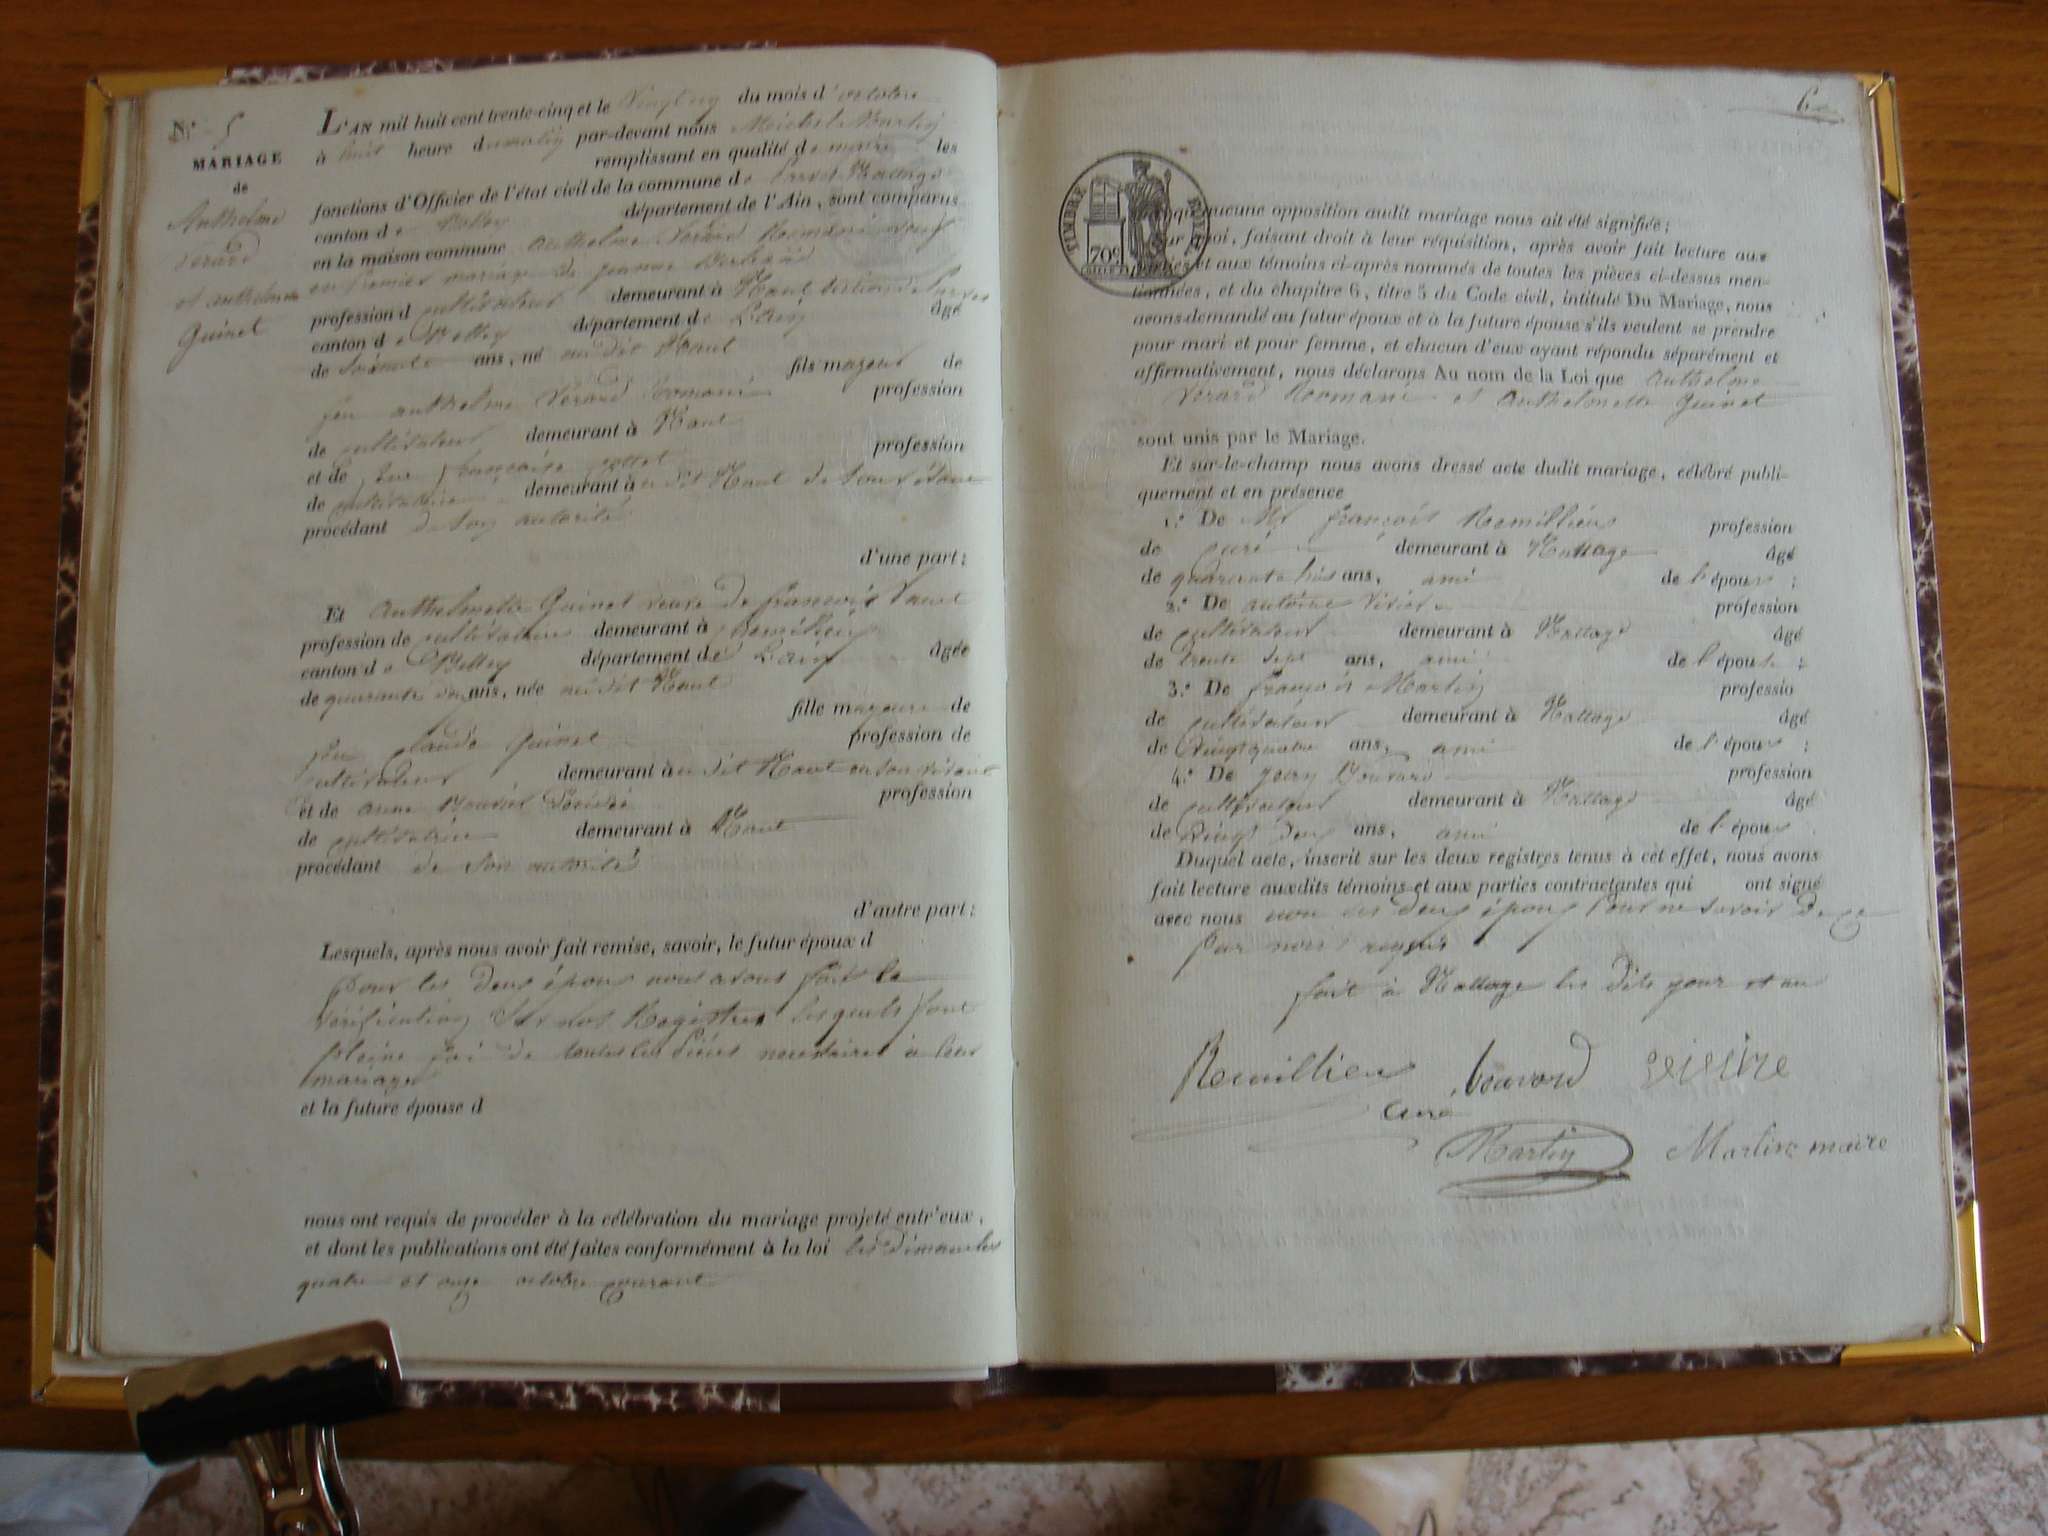 N.° 5
MARIAGE
de
Anthelme
Verard
et anthelme
Guinet
L'AN mil huit cent trente-cinq et le du mois d'octobre
à huit heure du matin par-devant nous Michel Martin
remplissant en qualité de maire les
fonctions d'Officier de l'état civil de la commune de Nattage
canton de Belley département de l'Ain, sont comparus
en la maison commune Anthelme Verard Romani veuf
en premier mariage de jeanne
profession d cultivateur demeurant à
canton de Belley département de L'ain âgé
de Soixante ans, né au dit
fils majeur de
feu anthelme Verard Romani profession
de cultivateur demeurant à
et de feue françoise profession
de cultivatrice demeurant à
procédant de son autorité
d'une part;
Et Anthelmette Guinet veuve de françois
profession de cultivatrice demeurant à
canton de Belley département de L'ain âgée
de quarante ans, née au dit
fille majeure de
feu Claude Guinet profession de
cultivateur demeurant à
et de anne profession
de cultivatrice demeurant à
procédant de son autorité
d'autre part;
Lesquels, après nous avoir fait remise, savoir, le futur époux d
pour les deux époux nous avons fait la
vérification Sur nos Registres lesquels font
pleine foi de toutes les pièces nécessaires à leur
mariage
et la future épouse d
nous ont requis de procéder à la célébration du mariage projeté entr'eux,
et dont les publications ont été faites conformément à la loi les Dimanches
quatre et onze octobre courant
6
TIMBRE ROYAL
70c
qu'aucune opposition audit mariage nous ait été signifiée;
quoi, faisant droit à leur réquisition, après avoir fait lecture aux
parties et aux témoins ci-après nommés de toutes les pièces ci-dessus men-
tionnées, et du chapitre 6, titre 5 du Code civil, intitulé Du Mariage, nous
avons demandé au futur époux et à la future épouse s'ils veulent se prendre
pour mari et pour femme, et chacun d'eux ayant répondu séparément et
affirmativement, nous déclarons Au nom de la Loi que Anthelme
Verard Romani et Anthelmette Guinet
sont unis par le Mariage.
Et sur-le-champ nous avons dressé acte dudit mariage, célébré publi-
quement et en présence
1.° De Mr françois Remillieux profession
de curé demeurant à Nattage âgé
de quarante ans, ami de l'époux;
2.° De antoine profession
de cultivateur demeurant à Nattage âgé
de trente sept ans, ami de l'épouse;
3.° De françois Martin professio
de cultivateur demeurant à Nattage âgé
de vingt quatre ans, ami de l'époux;
4.° De jean Bouvard profession
de cultivateur demeurant à Nattage âgé
de vingt deux ans, ami de l'époux
Duquel acte, inscrit sur les deux registres tenus à cèt effet, nous avons
fait lecture auxdits témoins et aux parties contractantes qui ont signé
avec nous non les deux époux pour ne savoir de ce
par nous requis
fait à Nattage les dits jour et an
Remillieux bouvard
Curé
Martin Martin maire